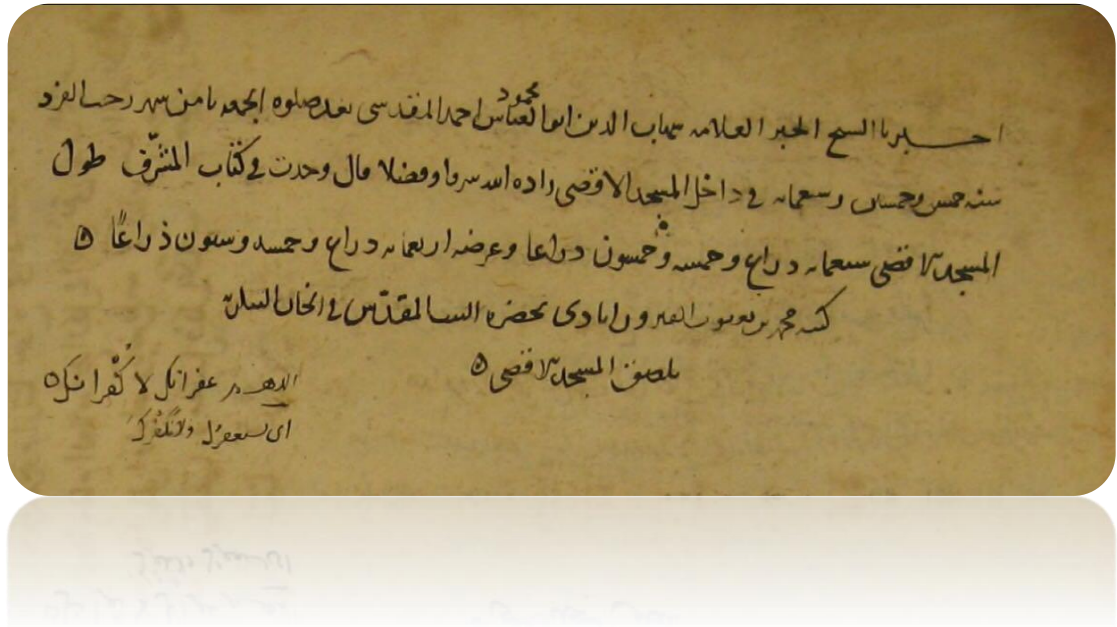 اخبرنا الشيخ الحبر العلامة شهاب الدين ابو محمود العباس احمد المقدسي بعد صلوة الجمعة ثامن شهر رجب الفرد
سنة خمس وخمسين وسبعمائة في داخل المسجد الاقصى زاده الله شرفا وفضلا قال وجدت في كتاب المشرّف طول
المسجد الاقصى سبعمائة ذراع وخمسة وخمسون ذراعا وعرضه اربعمائة ذراع وخمسة وستون ذراعًا ه
كتبه محمد بن يعقوب الفيروزابادي بحضرة البيت المقدّس في الخان
بلصق المسجد الاقصى ه
اللهم غفرانك لا كُفرانك ه
اي نستغفرك ولا نكفرك